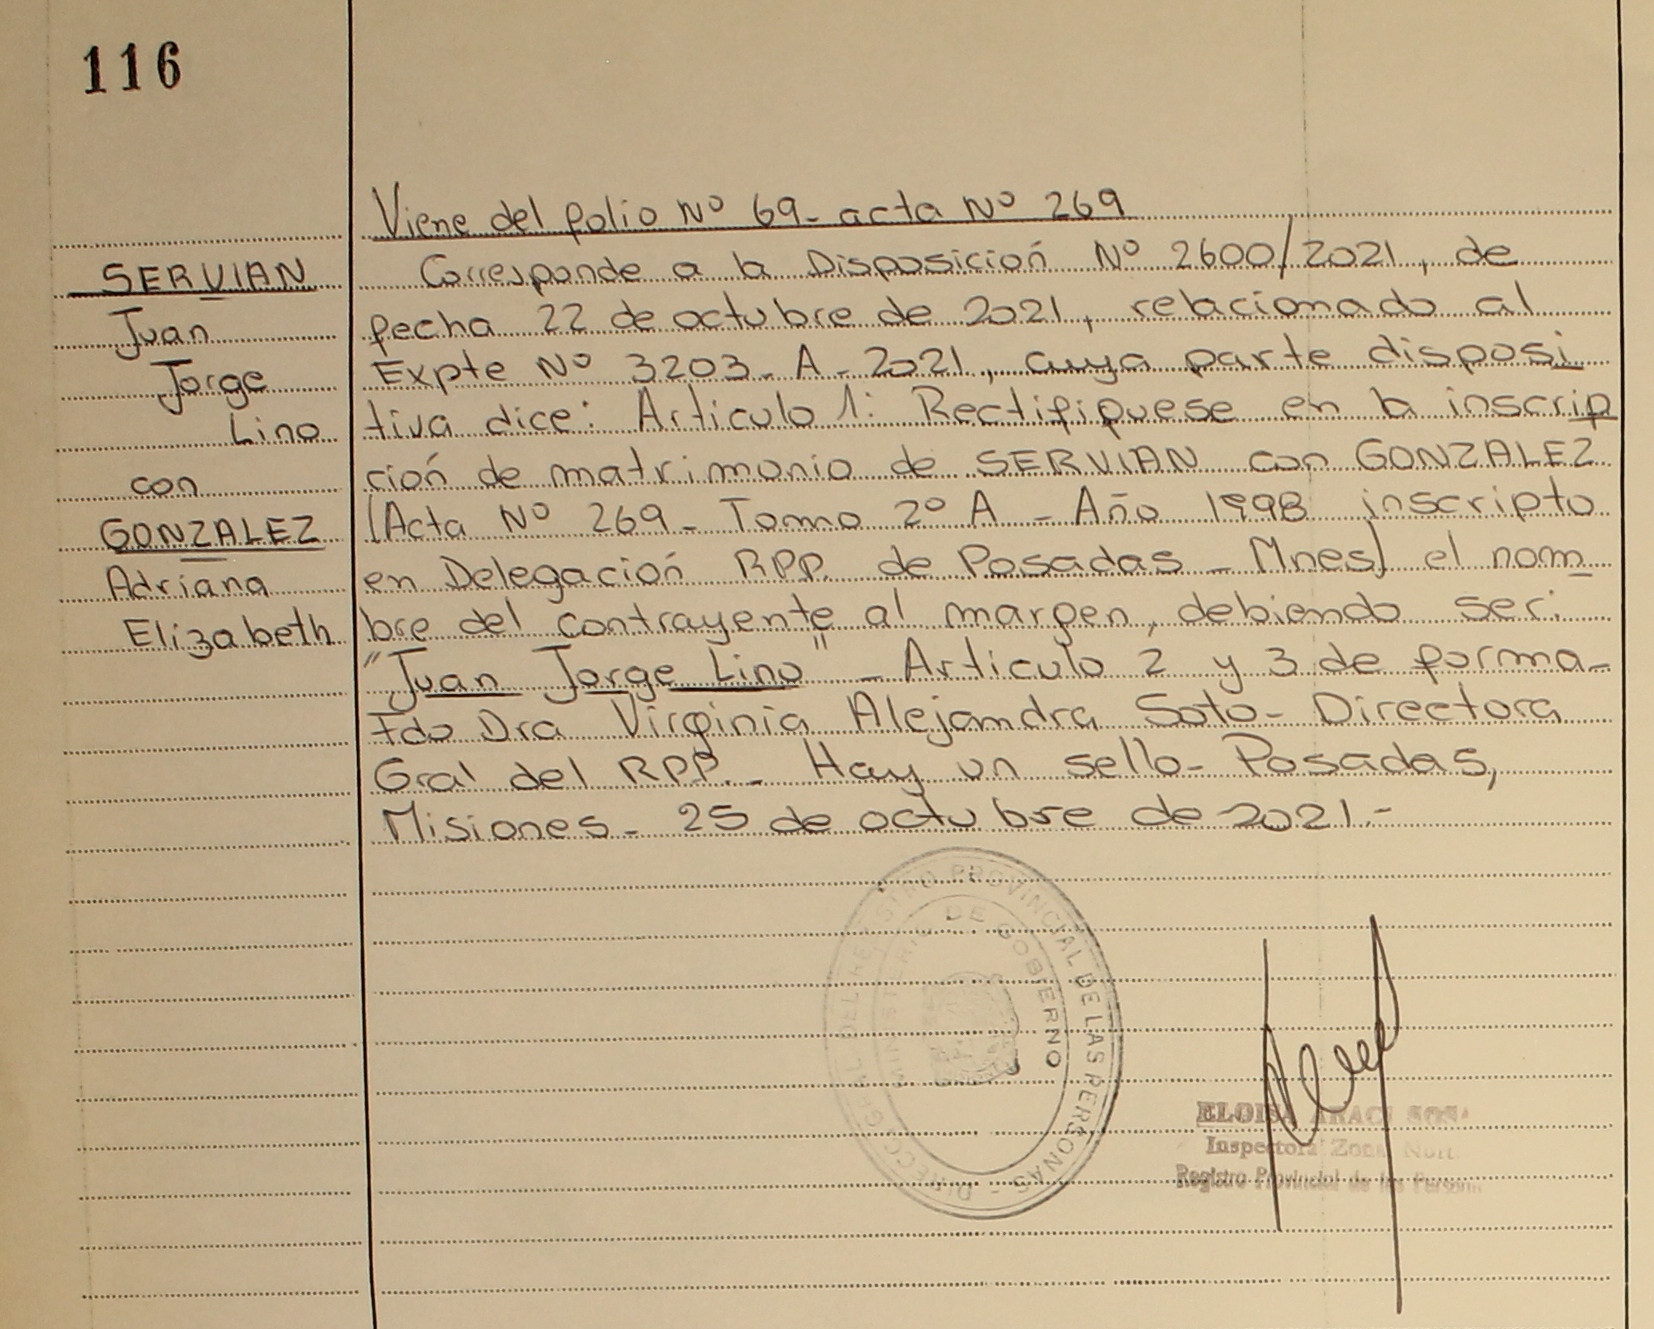 116
Viene del folio Nº 69- acta Nº 269
SERVIAN
Juan
Jorge
Lino
con
GONZALEZ
Adriana
Elizabeth
Corresponde a la Disposición Nº 2600/2021, de
fecha 22 de octubre de 2021, relacionado al
Expte Nº 3203- A - 2021, cuya parte disposi
tiva dice: Articulo 1: Rectifiquese en la inscrip
ción de matrimonio de SERVIAN con GONZALEZ
(Acta Nº 269- Tomo 2º A - Año 1998 inscripto
en Delegación RPP. de Posadas - Mnes) el nom
bre del contrayente al margen, debiendo ser:
"Juan Jorge Lino" - Articulo 2 y 3 de forma-
Fdo Dra Virginia Alejandra Soto- Directora
Gral del RPP.- Hay un sello- Posadas,
Misiones- 25 de octubre de 2021.-
PROVINCIAL DE LAS PERSONAS -
DE GOBIERNO
ELOISA ARACI SOSA
Inspectora Zona
Registro Provincial de las